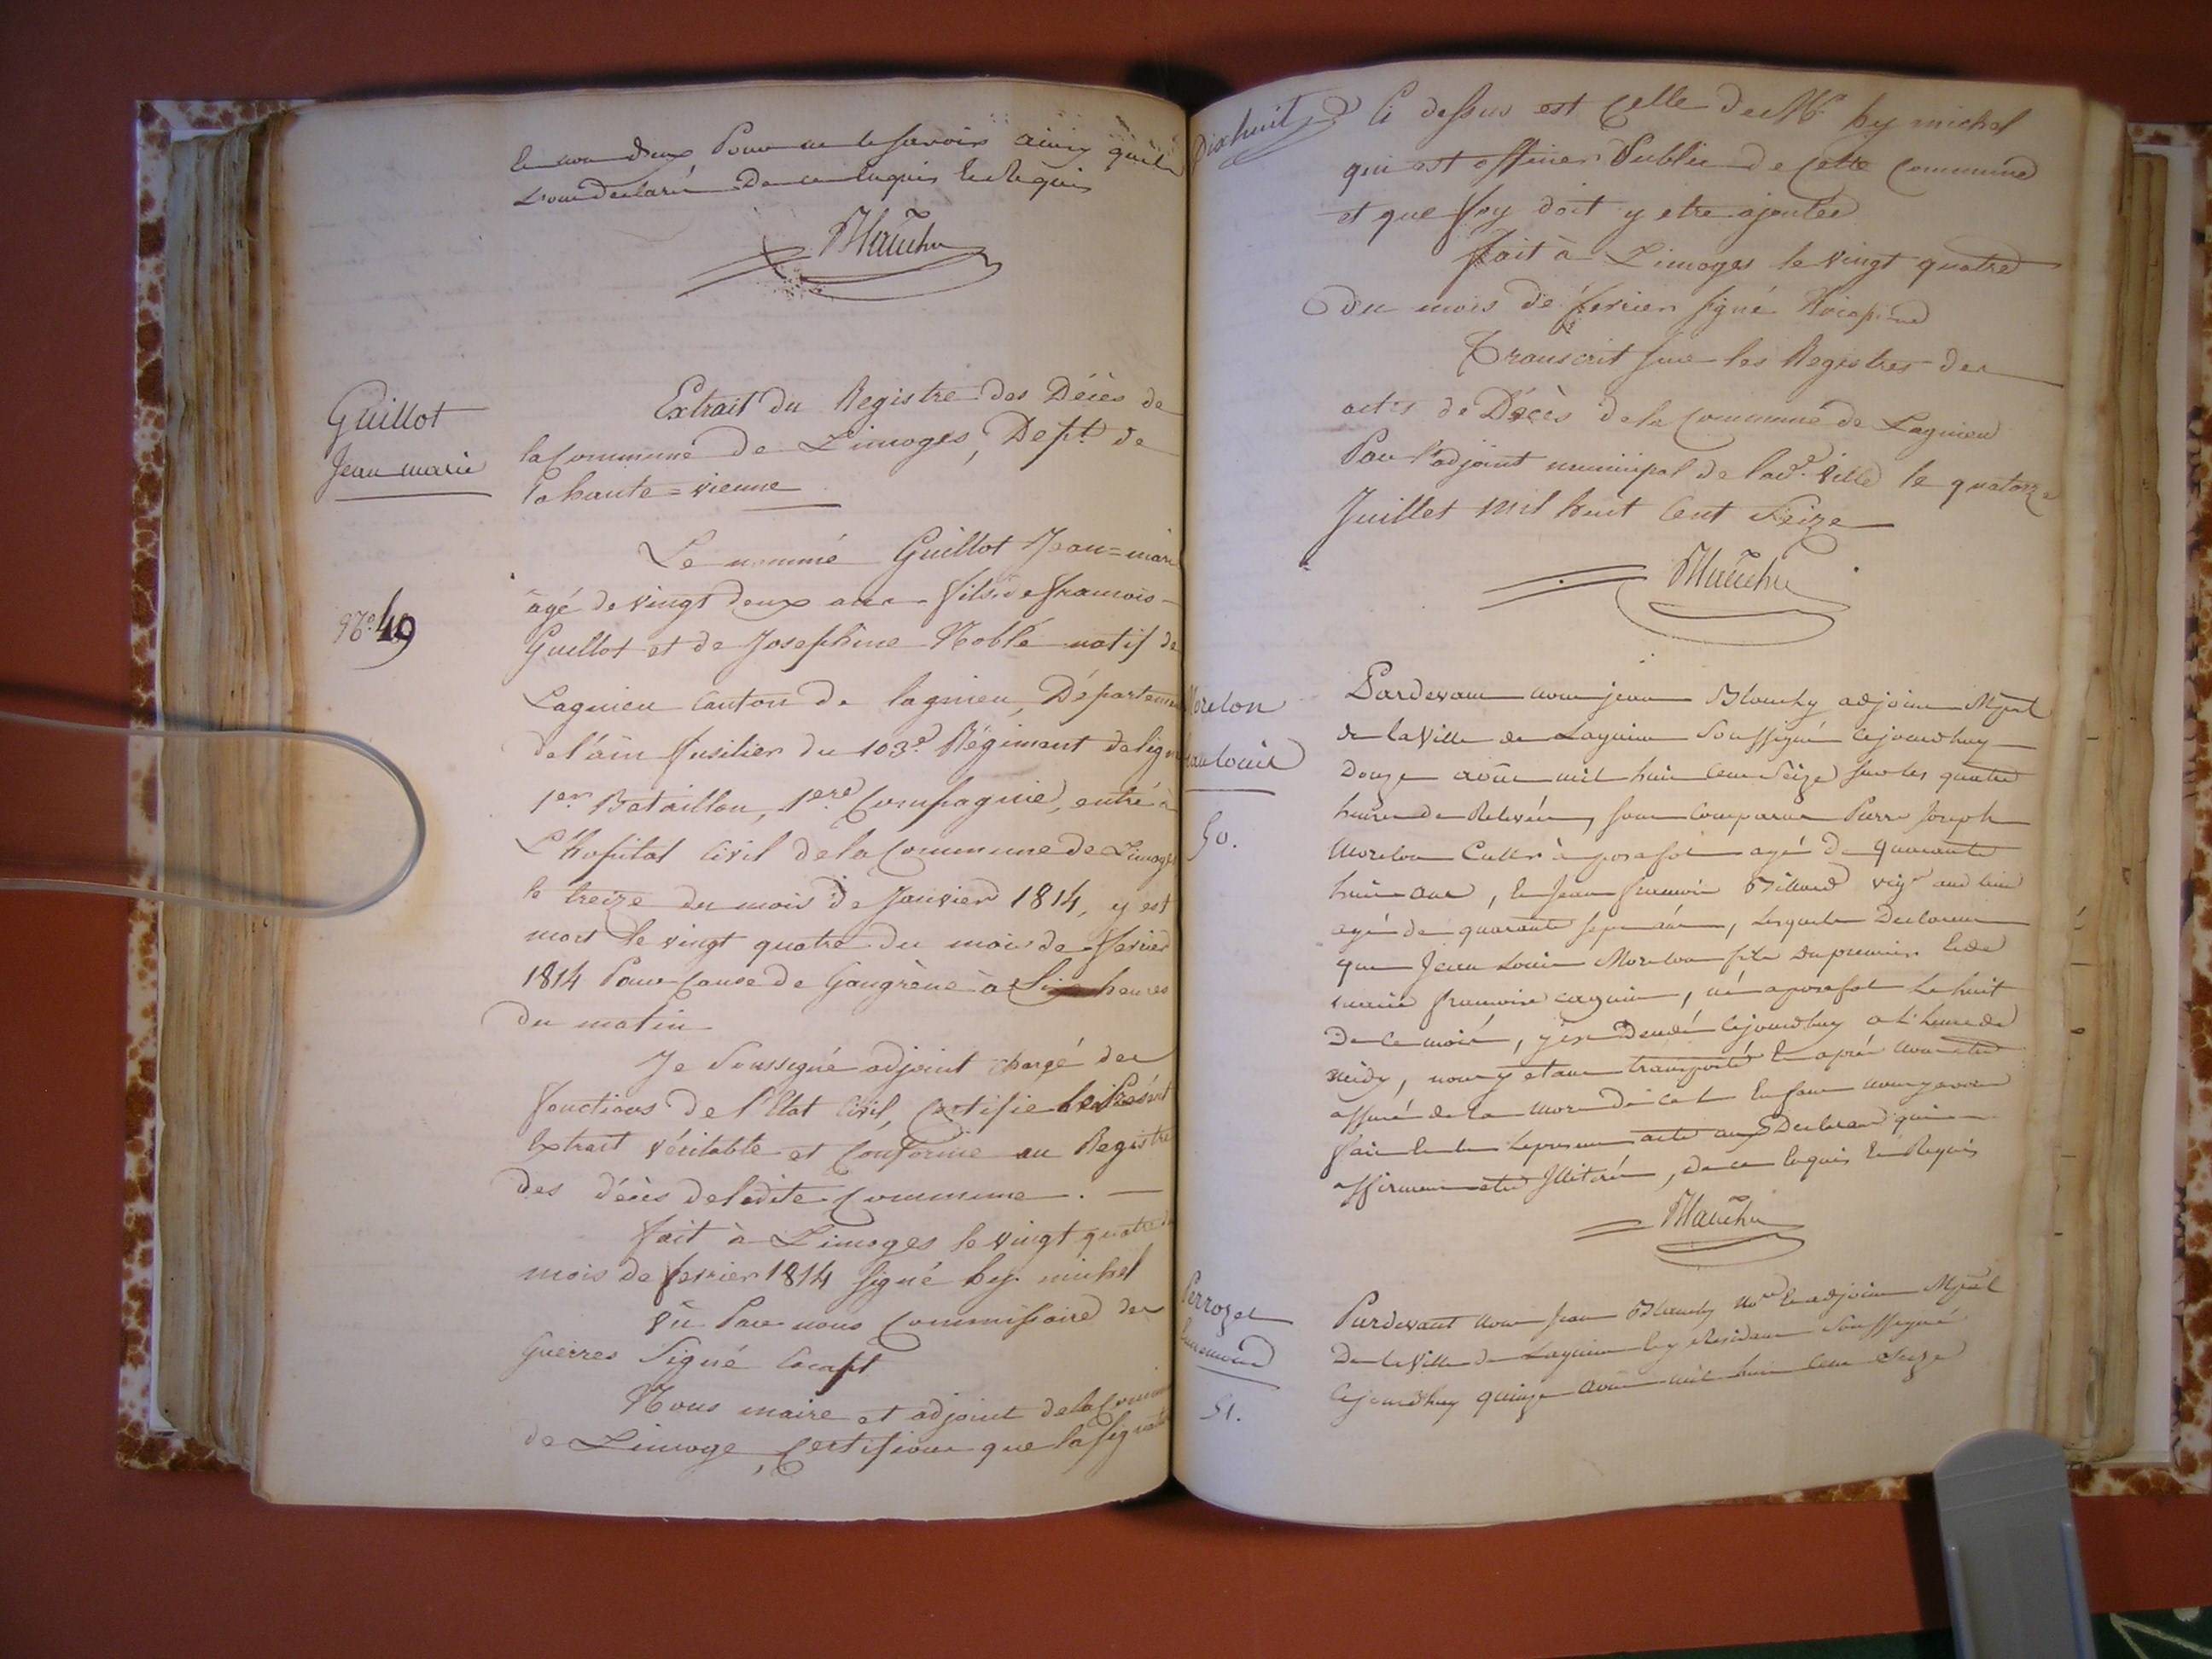 Pour ne le savoir ainsy quils
Blanchy
Guillot
Jean marie
N.o 49
Extrait du Registre des Décès de
la Commune de Limoges, Dept de
la haute=vienne
Le nommé Guillot Jean=marie
âgé de vingt deux ans fils de francois
Guillot et de Josephine Noblé natif de
Lagnieu Canton de lagnieu, Département
de l'ain fusilier du 103.e Régiment de ligne
1er Bataillon, 1ere Compagnie, entré à
L'hopital Civil de la Commune de Limoges
le treize du mois de Janvier 1814, y est
mort le vingt quatre du mois de fevrier
1814 Pour Cause de Gangrène à Six heures
du matin
Je Soussigné adjoint chargé des
fonctions de l'Etat Civil, Certifie le Présent
Extrait véritable et Conforme au Registre
des décès de ladite Commune.
fait à Limoges le vingt quatre du
mois de fevrier 1814 signé by michel
Vu Par nous Commissaire des
Guerres Signé
Nous maire et adjoint de la Commune
de Limoge, Certifions que la signature
Dixhuit
Ci dessus est Celle de Mr by michel
qui est officier Public de Cette Commune
et que foy doit y etre ajoutée
fait à Limoges le vingt quatre
du mois de fevrier signé
Transcrit sur les Registres des
actes de Décès de la Commune de Lagnieu
Par l'adjoint municipal de lad.e ville le quatorze
Juillet mil huit Cent Seize
Blanchy
Morelon
Jean louis
50.
Pardevant nous jean Blanchy adjoint Mpal
de la Ville de Lagnieu Soussigné cejourdhuy
Douze août mil huit Cent Seize sur les quatre
heures de Relevée, sont Comparus Pierre Joseph
Morelon Cultr à posafol agé de quarante
huit ans, et Jean francois Billiard vign aud lieu
agé de quarante sept ans, Lesquels Declarent
que Jean Louis Morelon fils du premier et de
marie francoise, né a posafol le huit
De ce mois, y est Décédé Cejourdhuy a L'heure de
midy, nous y etant transporté et après nous etre
assuré de la mort de cet Enfant nous avons
fait et lu le present acte aux Declarants qui
affirment etre Illitérés, de ce Enquis et Requis
Blanchy
Perrozet
51.
Pardevant nous Jean Blanchy nore et adjoint Mpal
De la Ville de Lagnieu y Residant Soussigné
Cejourdhuy quinze août mil huit Cent Seize